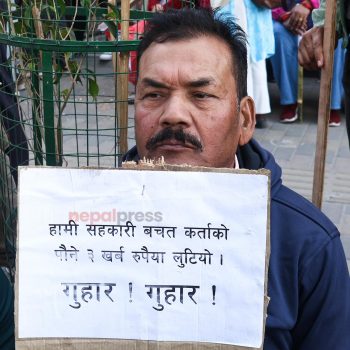 nepalpress
हामी सहकारी बचत कर्ताको
पौने ३ खर्ब रुपैया लुटियो ।
गुहार ! गुहार !